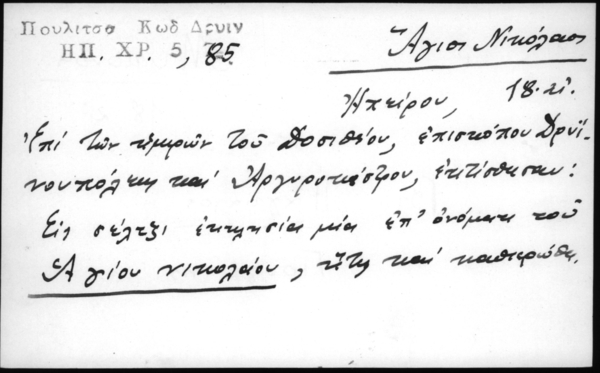 Πουλιτσα Κωδ Δρυιν
ΗΠ. ΧΡ. 5, 85
Ἅγιος Νικόλαος
Ἠπείρου, 18. αἰ.
Ἐπί τῶν ἡμερῶν τοῦ Δοσιθέου, ἐπισκόπου Δρυϊ-
νουπόλεως καί Ἀργυροκάστρου, ἐκτίσθησαν:
Εἰς σέλτζι ἐκκλησία μία ἐπ' ὀνόματι τοῦ
Ἁγίου νικολαίου, ἥτις καί καθιερώθη.